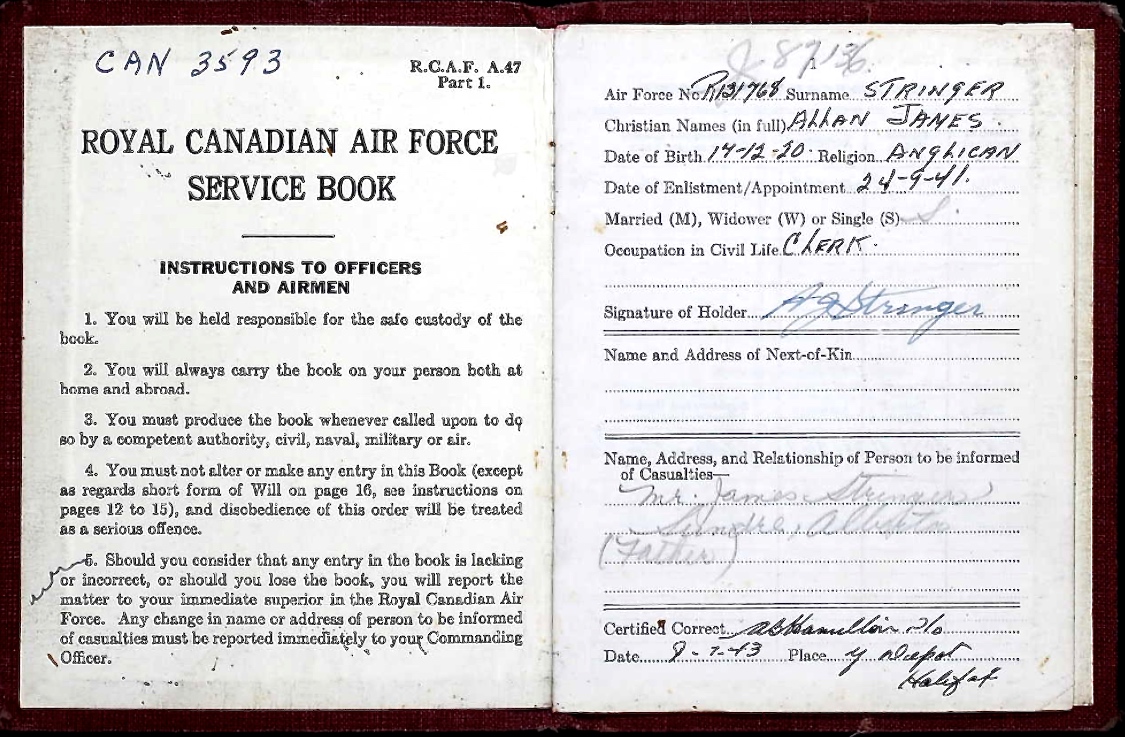 CAN 3593
R.C.A.F. A.47
Part 1.
ROYAL CANADIAN AIR FORCE
SERVICE BOOK
INSTRUCTIONS TO OFFICERS
AND AIRMEN
1. You will be held responsible for the safe custody of the
book.
2. You will always carry the book on your person both at
home and abroad.
3. You must produce the book whenever called upon to do
so by a competent authority, civil, naval, military or air.
4. You must not alter or make any entry in this Book (except
as regards short form of Will on page 16, see instructions on
pages 12 to 15), and disobedience of this order will be treated
as a serious offence.
5. Should you consider that any entry in the book is lacking
or incorrect, or should you lose the book, you will report the
matter to your immediate superior in the Royal Canadian Air
Force. Any change in name or address of person to be informed
of casualties must be reported immediately to your Commanding
Officer.
J 87136
Air Force No. R131768 Surname STRINGER
Christian Names (in full) ALLAN JAMES.
Date of Birth 17-12-20. Religion ANGLICAN
Date of Enlistment/Appointment 24-9-41.
Married (M), Widower (W) or Single (S) S.
Occupation in Civil Life CLERK.
Signature of Holder AJ Stringer
Name and Address of Next-of-Kin
Name, Address, and Relationship of Person to be informed
of Casualties—
Mr. James Stringer
Sundre, Alberta
(Father)
Certified Correct Hamilton
Date 8-7-43 Place Y Depot
Halifax